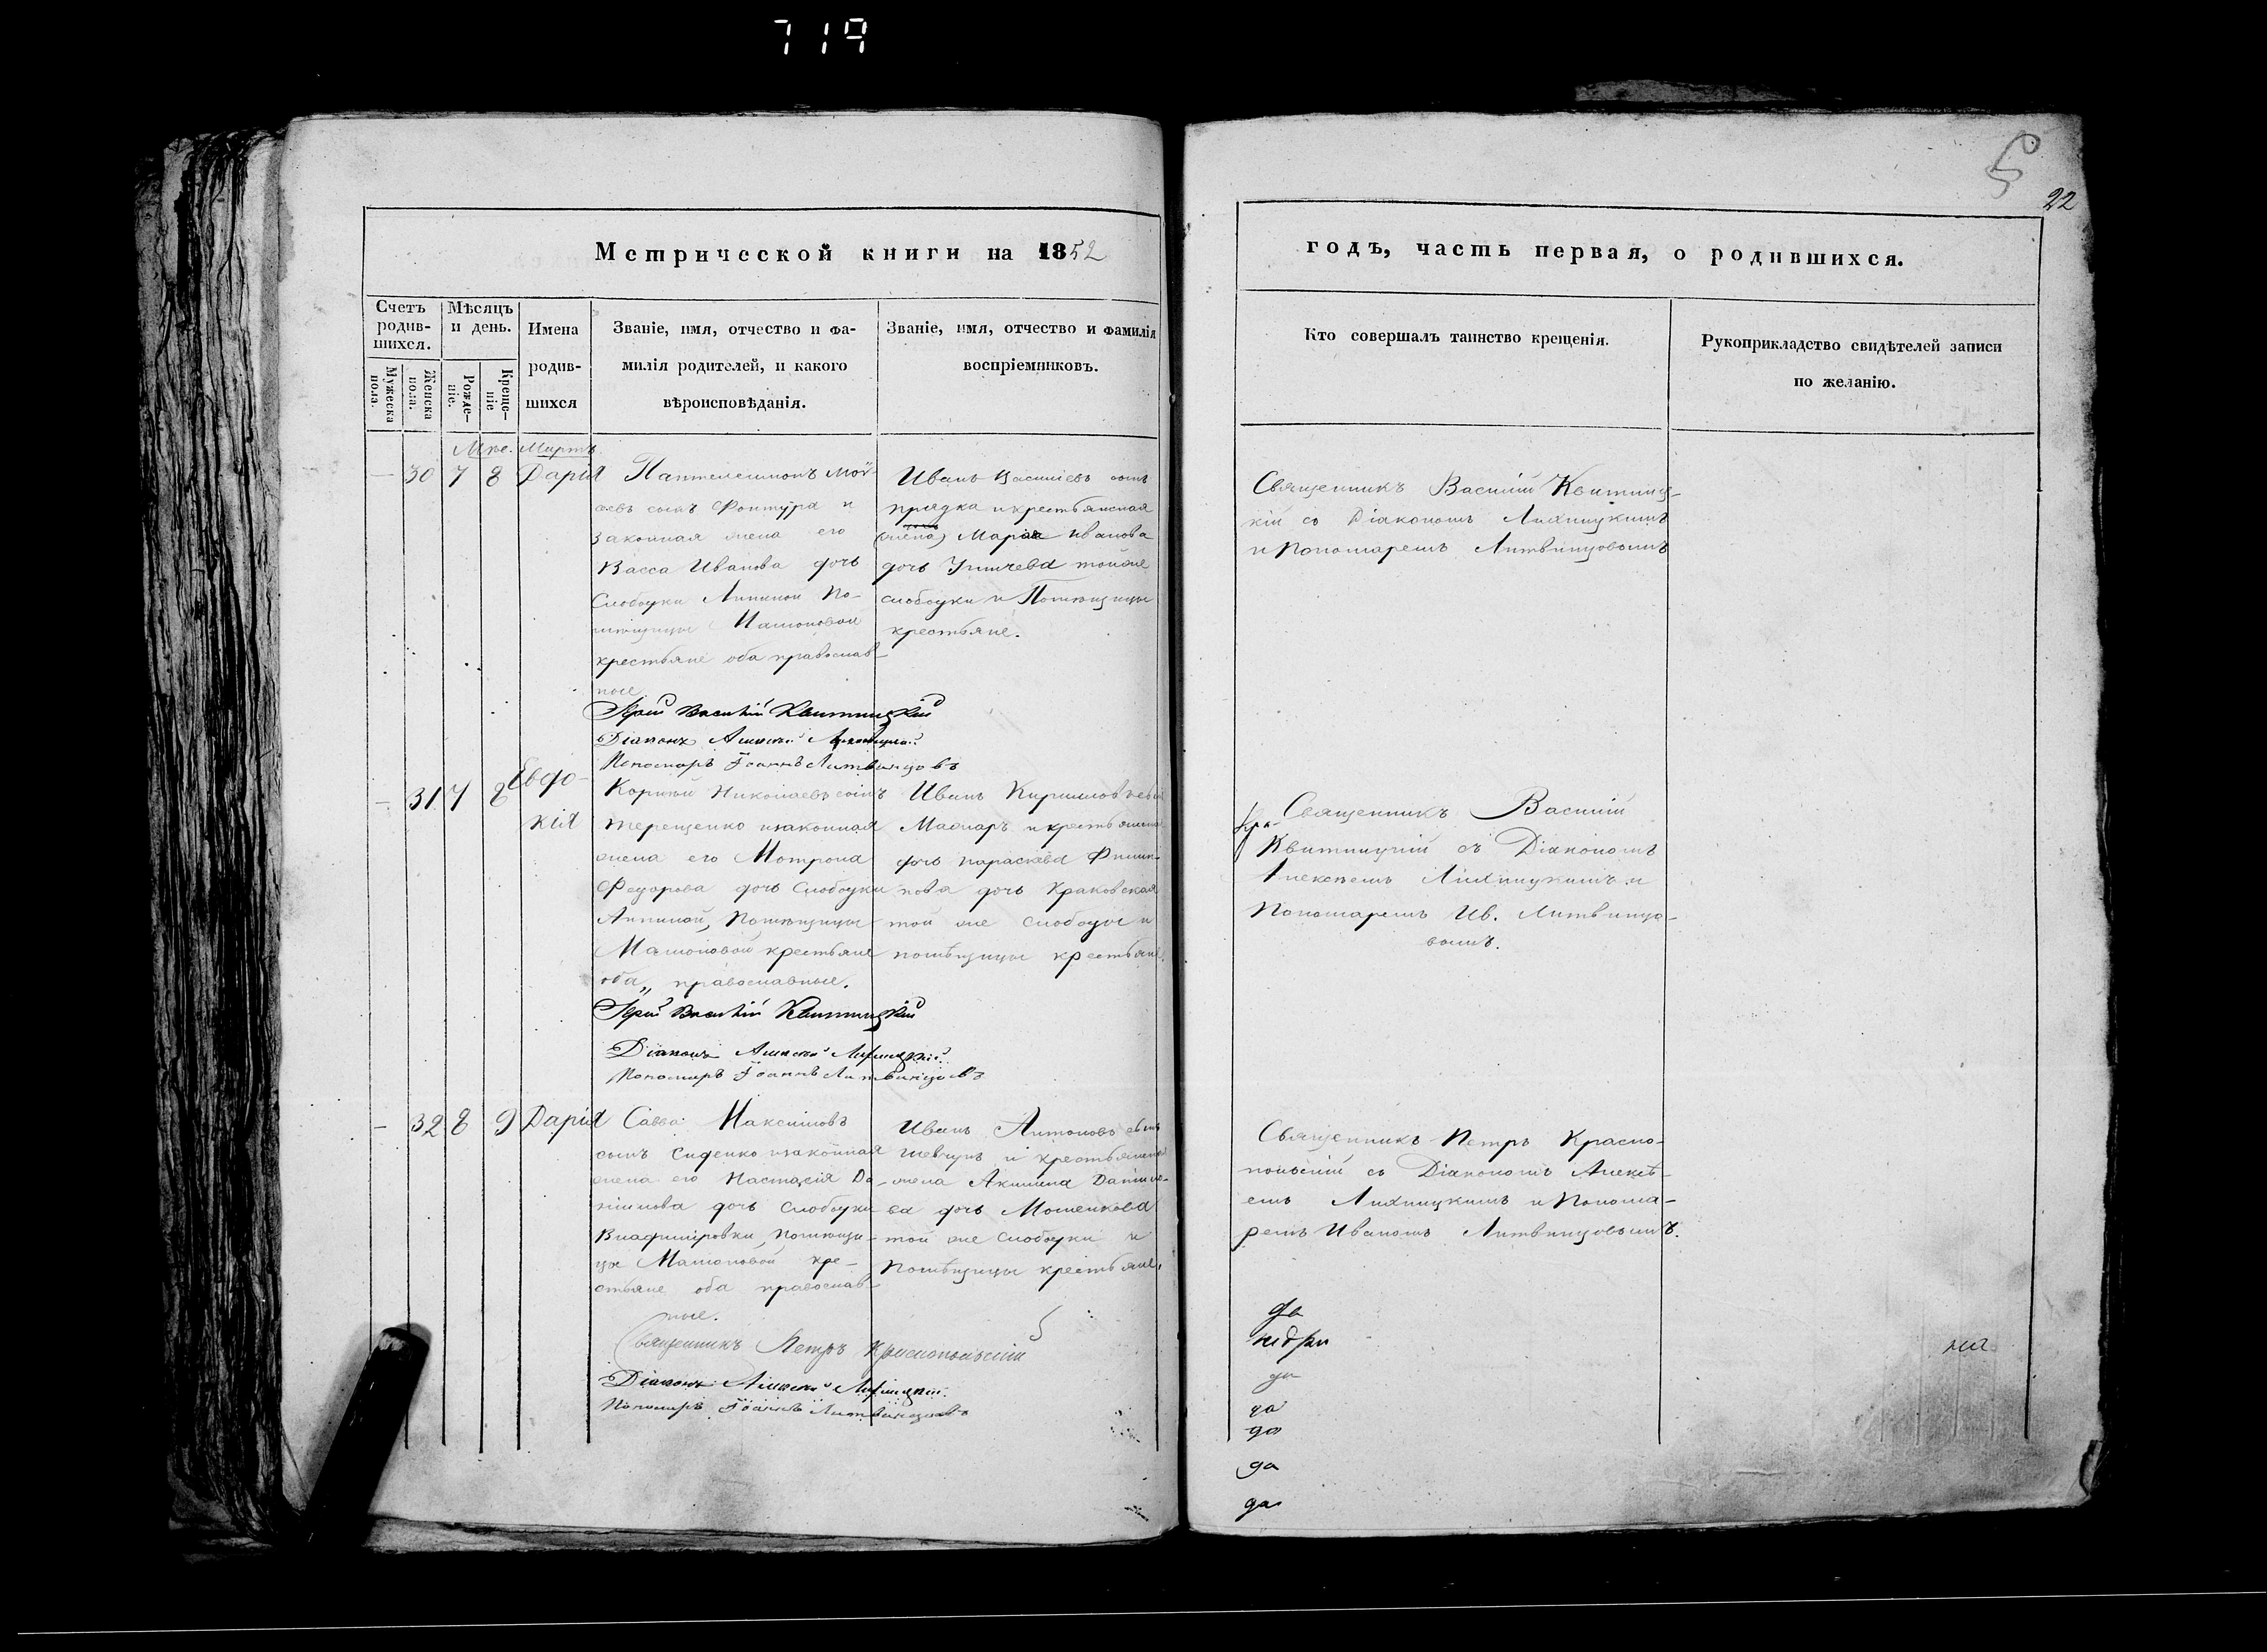 719
5
22
Метрической книги на 1852
годъ, часть первая, о родившихся.
Счетъ родив-шихся.
Мѣсяцъ и день.
Имена родив-шихся
Званіе, имя, отчество и фа-
милія родителей, и какого
вѣроисповѣданія.
Званіе, имя, отчество и фамилія
воспріемниковъ.
Кто совершалъ таинство крещенія.
Рукоприкладство свидѣтелей записи
по желанію.
Мужеска пола.
Женска пола.
Рожде-ніе.
Креще-ніе
Мартъ
30 7 8 Дарія
Пантелеимонъ Мой-
сынъ Фонтура и
законная жена его
Васса Иванова дочь
Слободки Липиной По-
крестьяне оба православ-
ные
Іерей Василій Квитницкій
Діаконъ Алексей Лихницкій
Пономарь Іоаннъ Литвинцовъ
Иванъ Васильевъ сынъ
прядка и крестьянская
жена Марія Иванова
дочь тойже
слободки и Помѣщицы
крестьяне.
Священникъ Василій Квитниц-
кій съ Діакономъ Лихницкимъ
и Пономаремъ Литвинцовымъ
31 7 8 Евдо-
кія
Корнилій Николаевъ сынъ
Терещенко и законная
жена его Мотрона
Федорова дочь Слободки
Липиной, Помѣщицы
крестьяне
оба православные.
Іерей Василій Квитницкій
Діаконъ Алексей Лихницкій
Пономарь Іоаннъ Литвинцовъ
Иванъ Кирилловъ
и крестьянская
дочь Параскева Филип-
пова дочь Краковская
той же слободы и
помѣщицы крестьяне.
Священникъ Василій
Квитницкій съ Діакономъ
Алексѣемъ Лихницкимъ и
Пономаремъ Ив. Литвинцо-
вымъ.
32 8 9 Дарія
Савва Максимовъ
сынъ Сиденко и законная
жена его Настасія Да-
ниилова дочь Слободки
Владиміровки, Помѣщи-
цы кре-
стьяне оба православ-
ные.
Священникъ Петръ Краснопольскій
Діаконъ Алексей Лихницкій
Пономарь Іоаннъ Литвинцовъ
Иванъ Антоновъ сынъ
Шевчукъ и крестьянская
жена Акилина Данило-
ва дочь Мошенкова
той же слободки и
Помѣщицы крестьяне.
Священникъ Петръ Красно-
польскій съ Діакономъ Алексѣ-
емъ Лихницкимъ и Понома-
ремъ Иваномъ Литвинцовымъ.
да
да
да
да
да
да